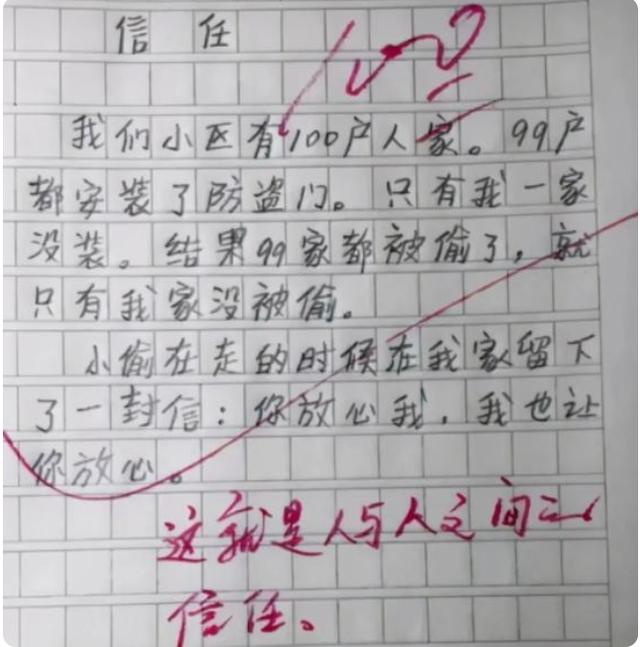 信任
我们小区有100户人家。99户
都安装了防盗门。只有我一家
没装。结果99家都被偷了，就
只有我家没被偷。
小偷在走的时候在我家留下
了一封信：你放心我，我也让
你放心。
这就是人与人之间的
信任。